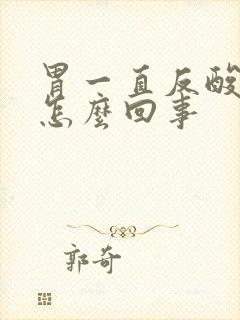 胃一直反酸
怎麼回事
郭奇